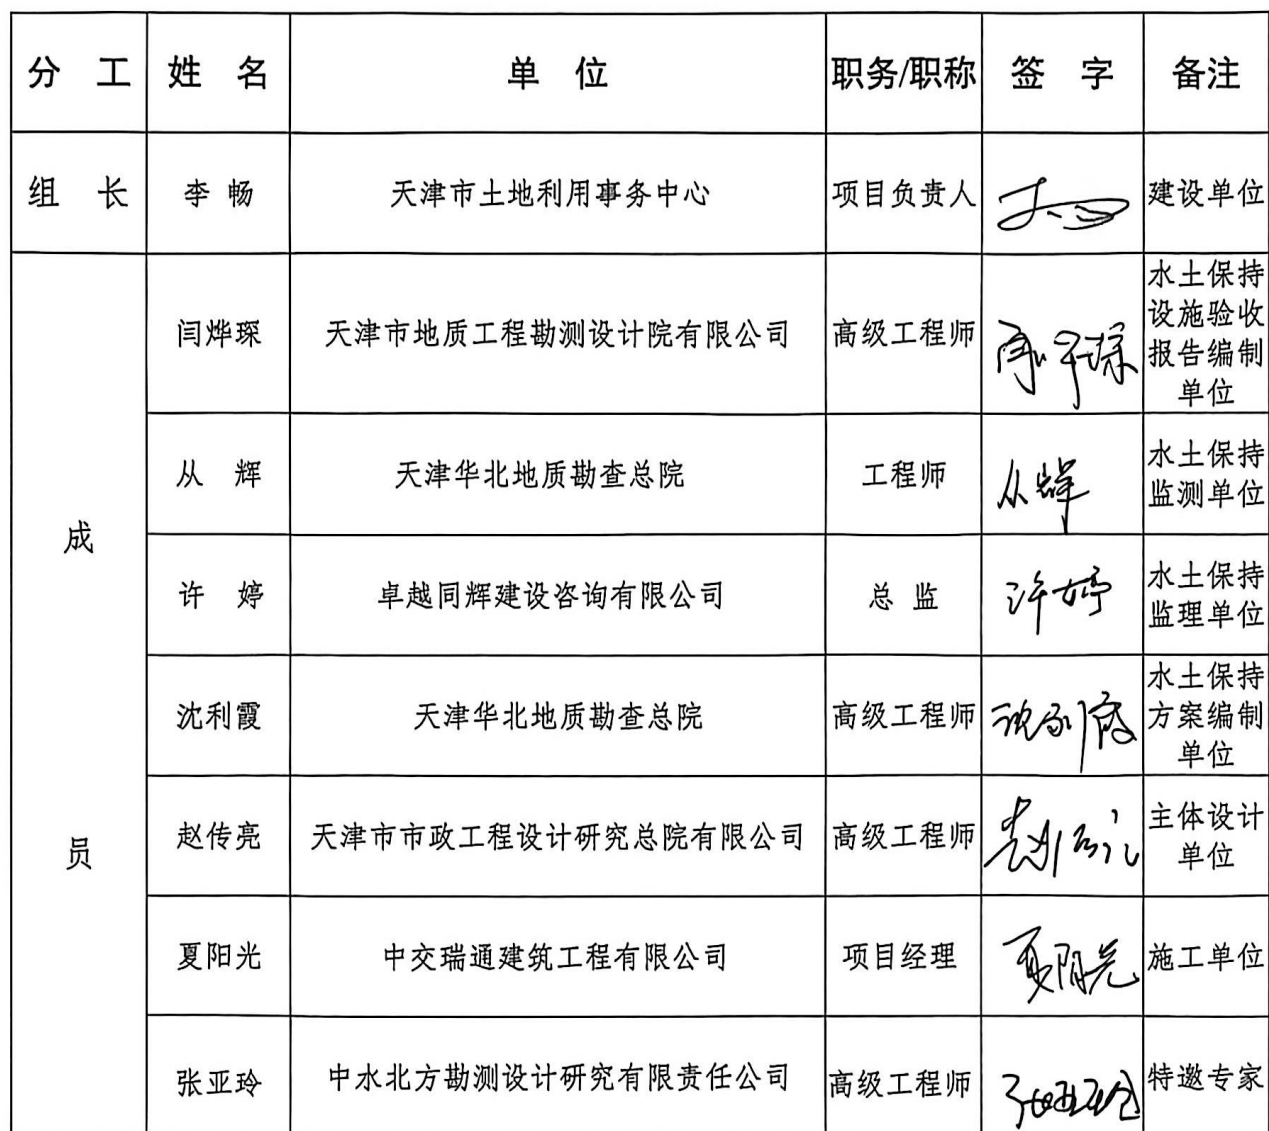 分 工 姓 名 单 位 职务/职称 签 字 备注
组 长 李 畅 天津市土地利用事务中心 项目负责人 建设单位
成 员
闫烨琛 天津市地质工程勘测设计院有限公司 高级工程师 水土保持
设施验收
报告编制
单位
从 辉 天津华北地质勘查总院 工程师 从辉 水土保持
监测单位
许 婷 卓越同辉建设咨询有限公司 总 监 许婷 水土保持
监理单位
沈利霞 天津华北地质勘查总院 高级工程师 沈利霞 水土保持
方案编制
单位
赵传亮 天津市市政工程设计研究总院有限公司 高级工程师 主体设计
单位
夏阳光 中交瑞通建筑工程有限公司 项目经理 夏阳光 施工单位
张亚玲 中水北方勘测设计研究有限责任公司 高级工程师 张亚玲 特邀专家